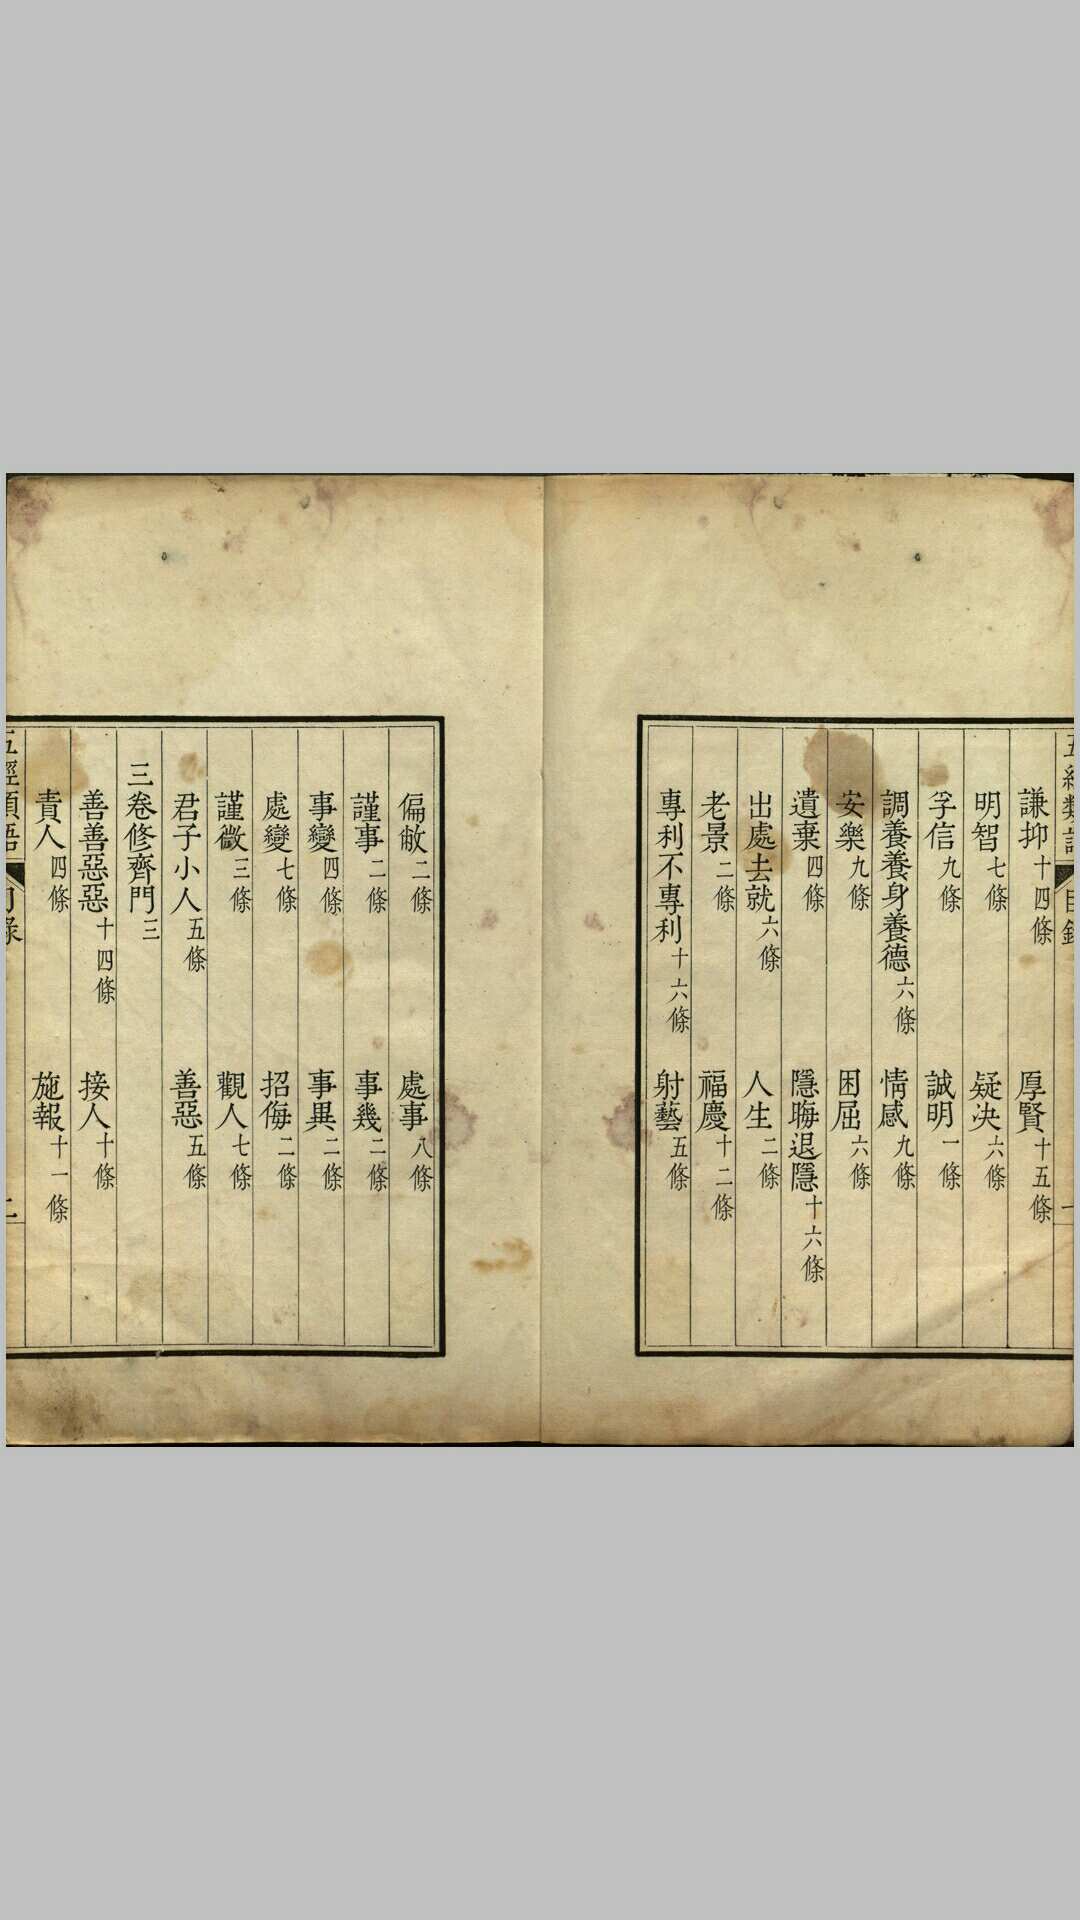 五經類語 目錄 一
謙抑十四條 厚賢十五條
明智七條 疑决六條
孚信九條 誠明一條
調養養身養德六條 情感九條
安樂九條 困屈六條
遺棄四條 隱晦退隱十六條
出處去就六條 人生二條
老景二條 福慶十二條
專利不專利十六條 射藝五條
偏敝二條 處事八條
謹事二條 事幾二條
事變四條 事異二條
處變七條 招侮二條
謹微三條 觀人七條
君子小人五條 善惡五條
三卷修齊門三
善善惡惡十四條 接人十條
責人四條 施報十一條
五經類語 目錄 二